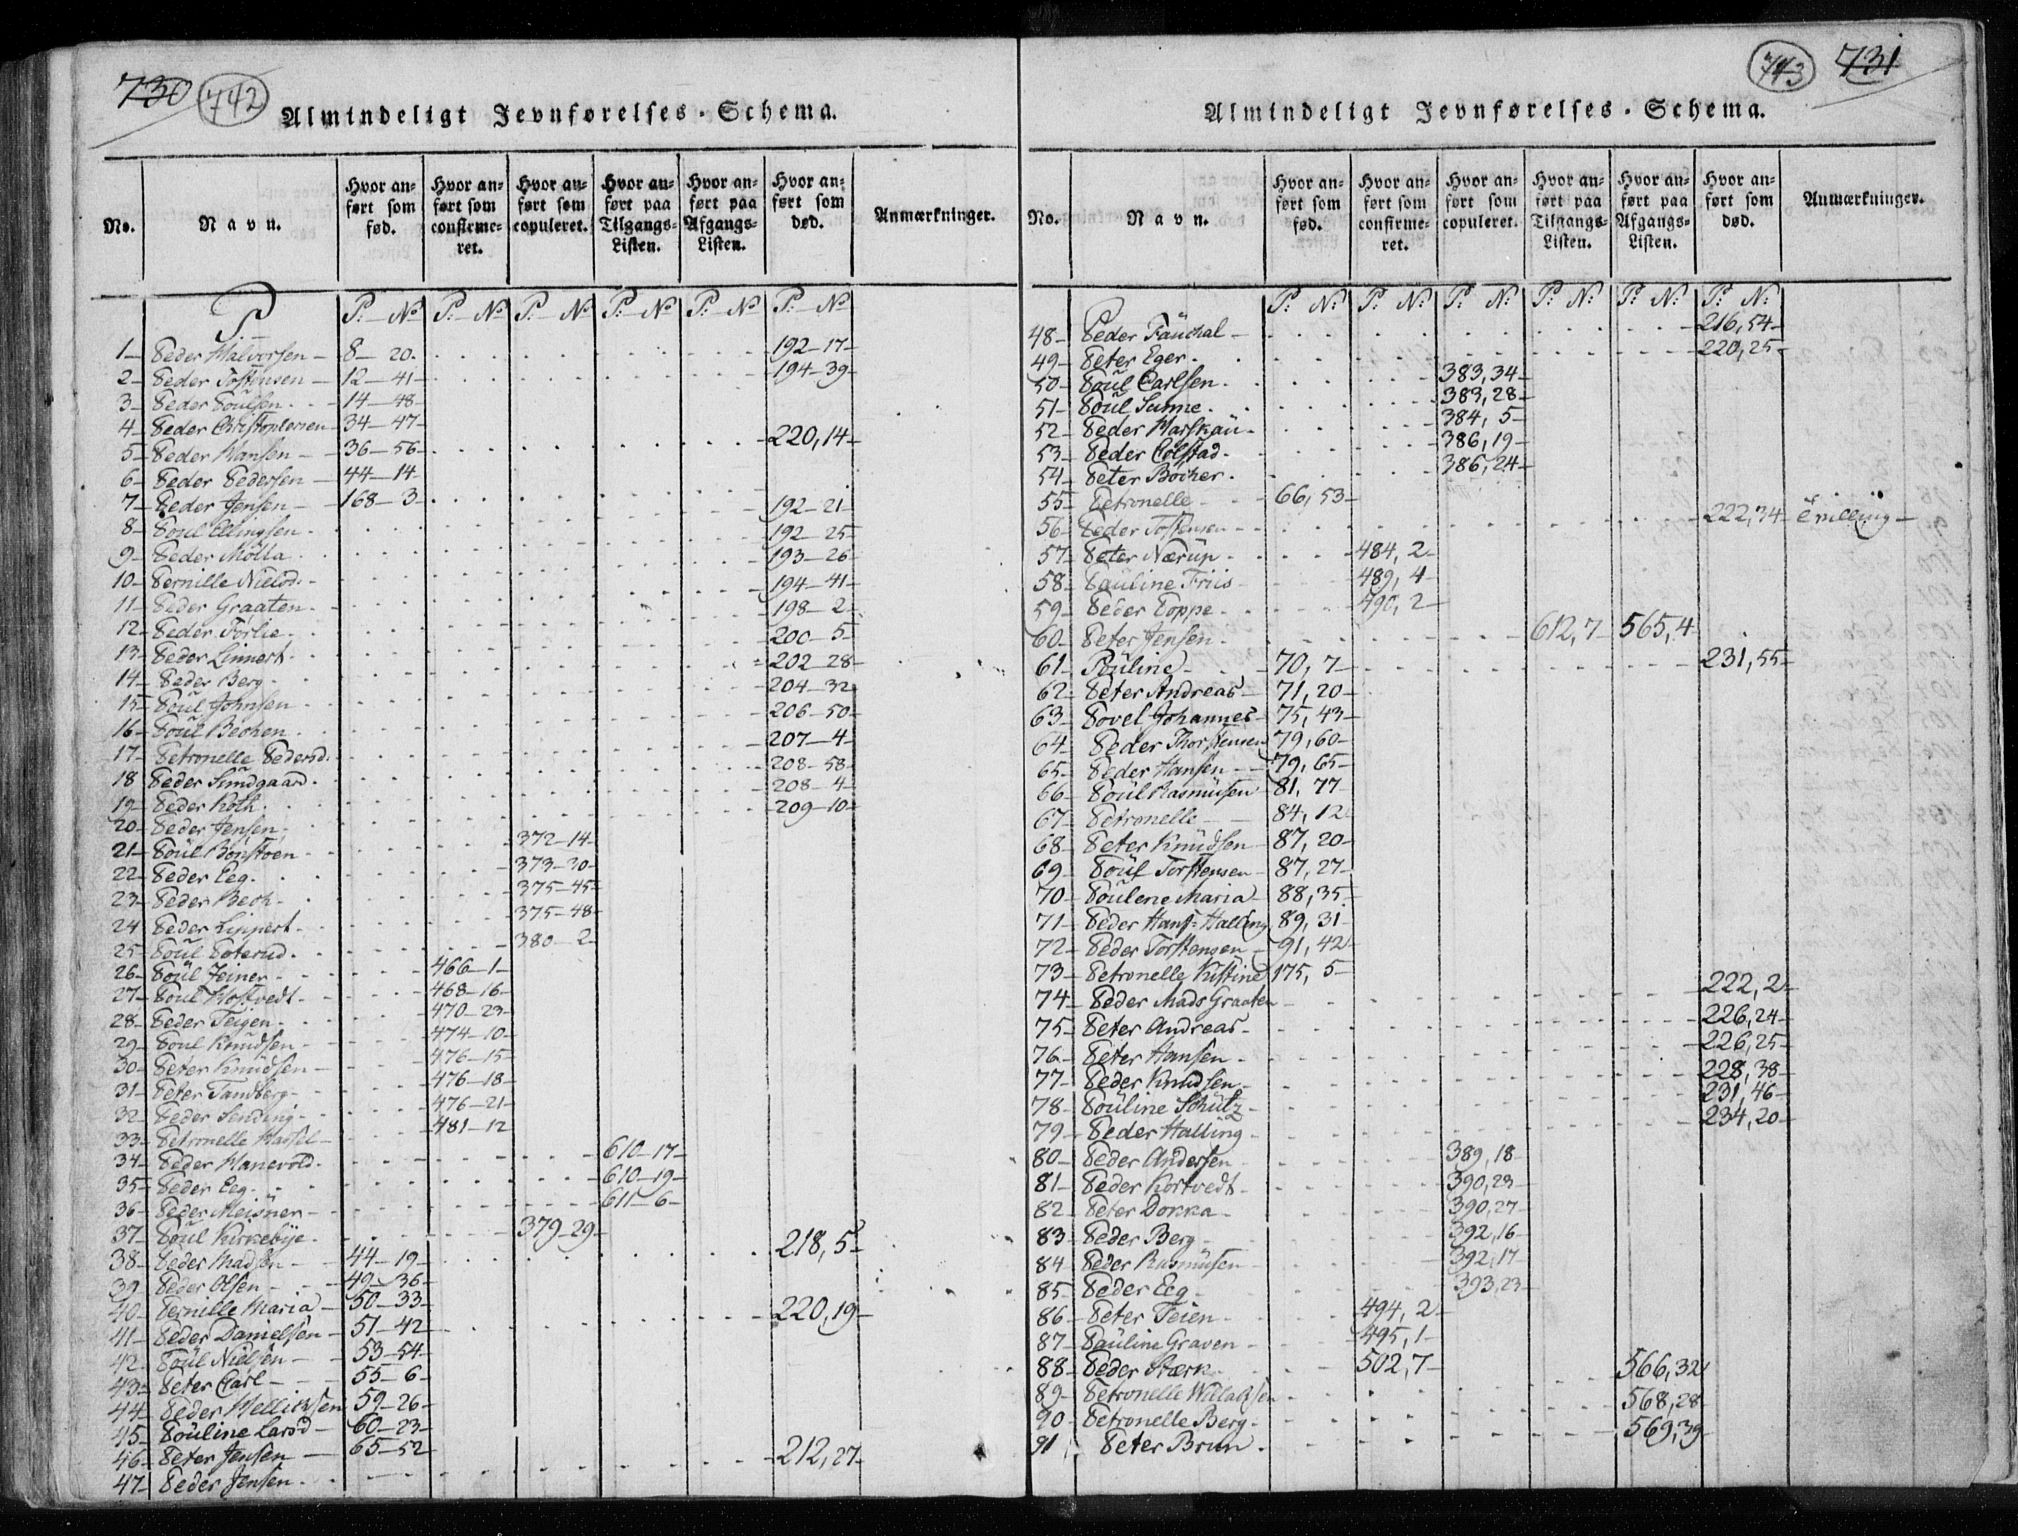 730 742
Almindeligt Jevnførelses-Schema.
No. Navn. Hvor anført som fød. Hvor anført som confirmeret. Hvor anført som copuleret. Hvor anført paa Tilgangs-Listen. Hvor anført paa Afgangs-Listen. Hvor anført som død. Anmærkninger.
P
P. No P. No P. No P. No P. No P. No
1 Peder Halvorsen 8-20 192-17
2 Peder Tostensen 12-41 194-39
3 Peder Poulsen 14-48
4 Peder Christophersen 34-47
5 Peder Hansen 36-56 220,14
6 Peder Pedersen 44-14
7 Peder Jensen 168-3
8 Poul Ellingsen 192-21
9 Peder Mölla 192-25
10 Pernille Nielsd. 193-26
11 Peder Graaten 194-41
12 Peder Torlie 198-2
13 Peder Linnert 200-5
14 Peder Berg 202-28
15 Poul Johnsen 204-32
16 Poul Becken 206-50
17 Petronelle Pedersd. 207-4
18 Peder Sundgaard 208-58
19 Peder Roth 208-4
20 Peder Jensen 209-10
21 Poul Bonstoen 372-14
22 Peder Eeg 373-30
23 Peder Beck 375-45
24 Peder Lippert 375-48
25 Poul Poterud 380-2
26 Poul Feiner 466-1
27 Poul Hostvedt 468-16
28 Peder Teigen 470-23
29 Poul Knudsen 474-10
30 Peter Knudsen 476-15
31 Peter Tandberg 476-18
32 Peder Sending 476-21
33 Petronelle Hassel 481-12
34 Peder Hanevold 610-17
35 Peder Eeg 610-19
36 Peder Meisner 611-6
37 Poul Kirkebye 379-29
38 Peder Madsen 44-19 218,5
39 Peder Olsen 49-36
40 Pernille Maria 50-33
41 Peder Danielsen 51-42 220,19
42 Poul Nielsen 53-54
43 Peter Carl 55-6
44 Peder Hellichsen 59-26
45 Pouline Larsd 60-23
46 Peter Jensen 65-52
47 Peder Jensen 212,27
743 731
Almindeligt Jevnførelses-Schema.
No. Navn. Hvor anført som fød. Hvor anført som confirmeret. Hvor anført som copuleret. Hvor anført paa Tilgangs-Listen. Hvor anført paa Afgangs-Listen. Hvor anført som død. Anmærkninger.
P. N. P. N. P. N. P. N. P. N. P. N.
48 Peder Fauchal 216,54
49 Peter Eger 220,25
50 Poul Carlsen 383,34
51 Poul Sanne 383,28
52 Peder Harskau 384,5
53 Peder Colstad 386,19
54 Peter Böcker 386,24
55 Petronelle 66,53
56 Peder Tostensen 222,34 Tvilling
57 Peter Nærup 484,2
58 Pauline Friis 489,4
59 Peder Poppe 490,2
60 Peter Jensen 612,7 565,4
61 Pouline 70,7 231,55
62 Peter Andreas 71,20
63 Povel Johannes 75,43
64 Peder Thorstensen 79,60
65 Peder Hansen 79,65
66 Poul Rasmusen 81,77
67 Petronelle 84,12
68 Peter Knudsen 87,20
69 Poul Torstensen 87,27
70 Poulene Maria 88,35
71 Peder Hans Halling 89,31
72 Peder Torstensen 91,42
73 Petronelle Kistine 175,5
74 Peder Mads Graaten 222,2
75 Peter Andreas 226,24
76 Peter Hansen 226,25
77 Peder Knudsen 228,38
78 Pouline Schütz 231,46
79 Peder Halling 234,20
80 Peder Andersen 389,18
81 Peder Kortvedt 390,23
82 Peter Dokka 390,27
83 Peder Berg 392,16
84 Peder Rasmusen 392,17
85 Peder Eeg 393,23
86 Peter Feien 494,2
87 Pauline Graven 495,1
88 Peder Stærk 502,7 566,32
89 Petronelle 568,28
90 Petronelle Berg 569,39
91 Peter Brun